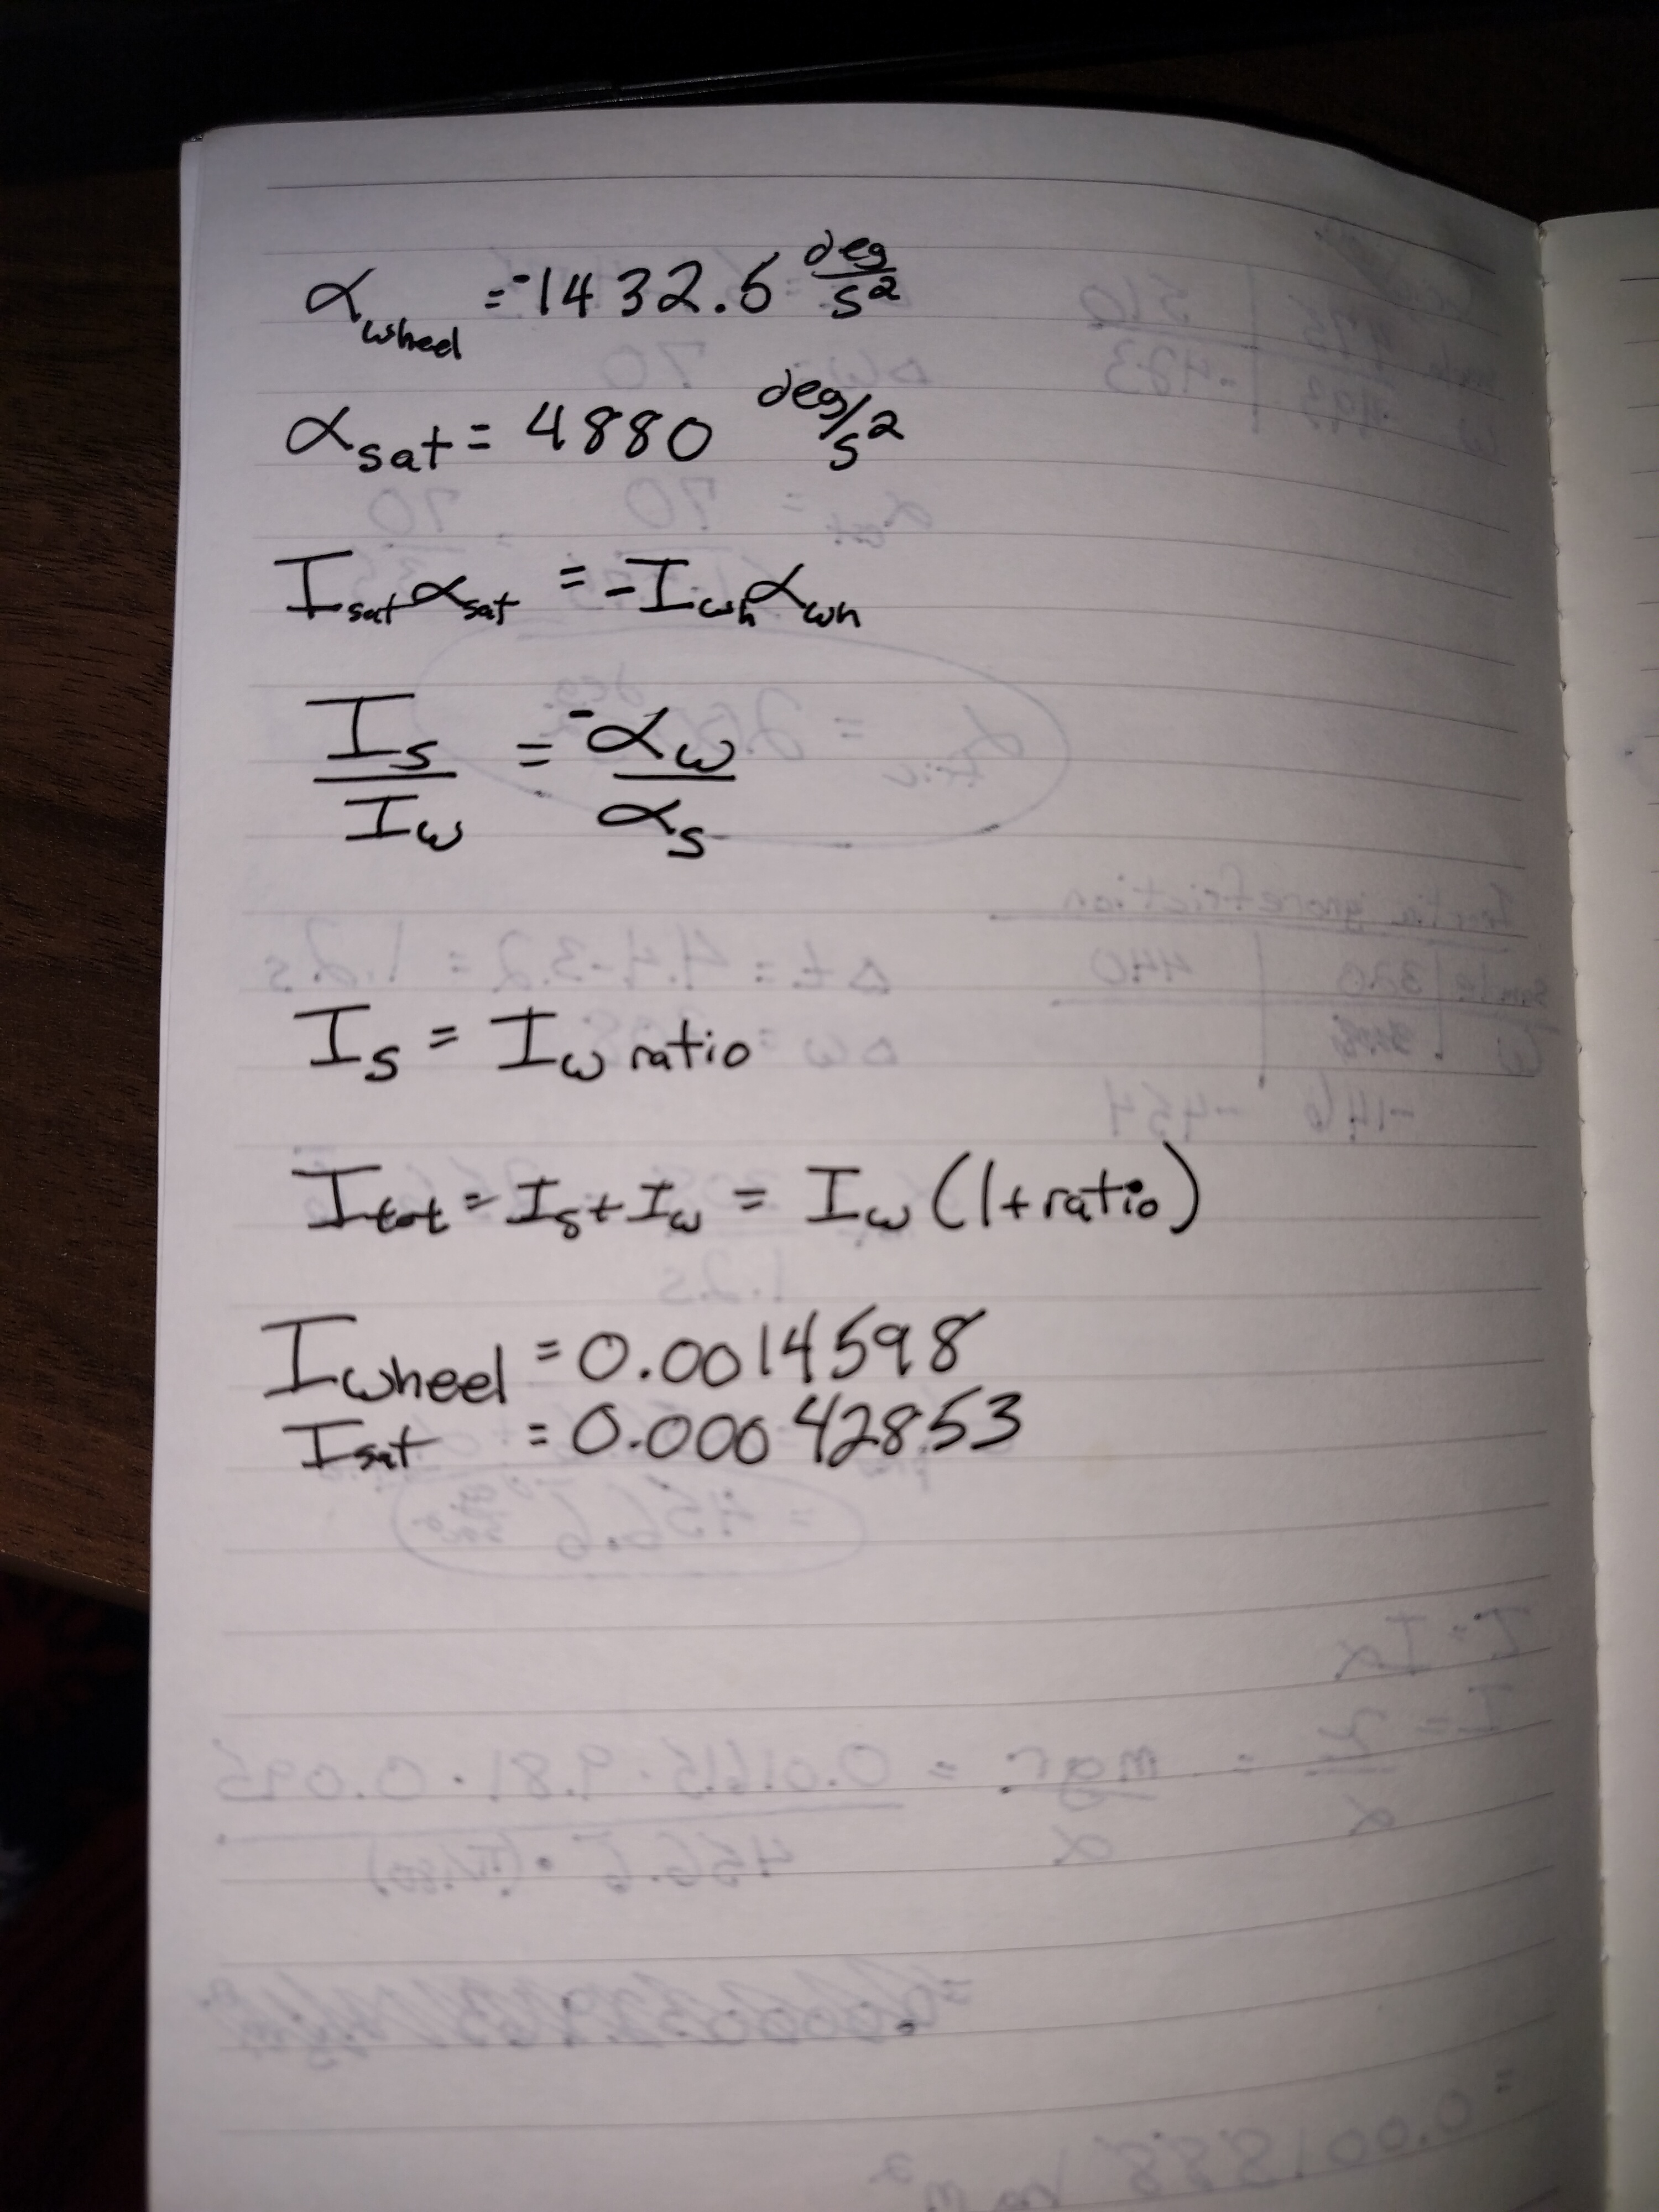 α_wheel = -1432.5 deg/s²
α_sat = 4880 deg/s²
I_sat α_sat = -I_wh α_wh
I_s / I_w = -α_w / α_s
I_s = I_w ratio
I_tot = I_s + I_w = I_w (1 + ratio)
I_wheel = 0.0014598
I_sat = 0.00042853